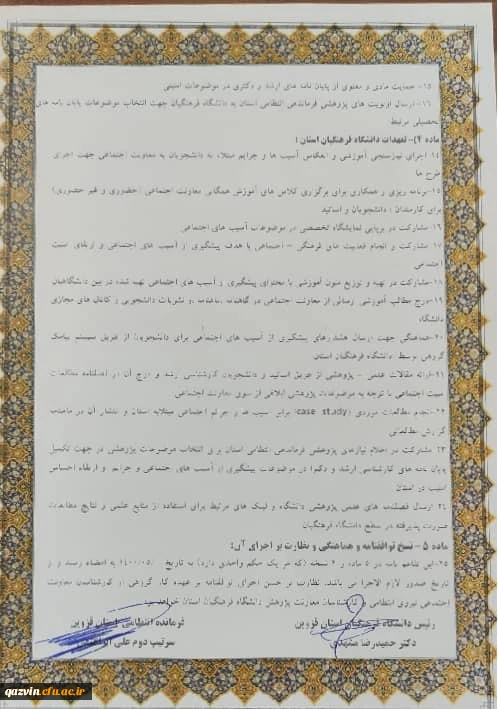 ۱۵- حمایت مادی و معنوی از پایان نامه های ارشد و دکتری در موضوعات امنیتی
۱۶- ارسال اولویت های پژوهشی فرماندهی انتظامی استان به دانشگاه فرهنگیان جهت انتخاب موضوعات پایان نامه های
تحصیلی مرتبط
ماده ۴)- تعهدات دانشگاه فرهنگیان استان :
۱۴ اجرای نیازسنجی آموزشی و انعکاس آسیب ها و جرایم مبتلابه دانشجویان به معاونت اجتماعی جهت اجرای
طرح ها
۱۵- برنامه ریزی و همکاری برای برگزاری کلاس های آموزش همگانی معاونت اجتماعی (حضوری و غیر حضوری)
برای کارمندان ، دانشجویان و اساتید
۱۶- مشارکت در برپایی نمایشگاه تخصصی در موضوعات آسیب های اجتماعی
۱۷ مشارکت و انجام فعالیت های فرهنگی – اجتماعی با هدف پیشگیری از آسیب های اجتماعی و ارتقای امنیت
اجتماعی
۱۸- مشارکت در تهیه و توزیع متون آموزشی با محتوای پیشگیری از آسیب های اجتماعی تهیه شده در بین دانشگاهیان
۱۹- درج مطالب آموزشی ارسالی از معاونت اجتماعی در گاهنامه ،ماهنامه ،و نشریات دانشجویی و کانال های مجازی
دانشگاه
۲۰- هماهنگی جهت ارسال هشدارهای پیشگیری از آسیب های اجتماعی برای دانشجویان از طریق سیستم پیامک
گروهی توسط دانشگاه فرهنگیان استان
۲۱- ارائه مقالات علمی – پژوهشی از طریق اساتید و دانشجویان کارشناسی ارشد و درج آن در فصلنامه مطالعات
امنیت اجتماعی با توجه به موضوعات پژوهشی ابلاغی از سوی معاونت اجتماعی
۲۲- انجام مطالعات موردی (case study) برابر آسیب ها و جرایم اجتماعی مبتلابه استان و انتشار آن در ماهنامه
گزارش مطالعاتی
۲۳ مشارکت در اعلام نیازهای پژوهشی فرماندهی انتظامی استان برای انتخاب موضوعات پژوهشی در جهت تکمیل
پایان نامه های کارشناسی ارشد و دکترا در موضوعات پیشگیری از آسیب های اجتماعی و جرایم و ارتقاء احساس
امنیت در استان
۲۴ ارسال فصلنامه های علمی پژوهشی دانشگاه و لینک های مرتبط برای استفاده از منابع علمی و نتایج مطالعات
صورت پذیرفته در سطح دانشگاه فرهنگیان
ماده ۵ – نسخ توافقنامه و هماهنگی و نظارت بر اجرای آن:
۲۵- این تفاهم نامه در ۵ ماده و ۲ نسخه (که هر یک حکم واحدی دارد) به تاریخ ۱۴۰۰/۰۵/ به امضاء رسید و از
تاریخ صدور لازم الاجرا می باشد. نظارت بر حسن اجرای توافقنامه بر عهده کارگروهی از کارشناسان معاونت
اجتماعی نیروی انتظامی و کارشناسان معاونت پژوهش دانشگاه فرهنگیان استان خواهد بود
رئیس دانشگاه فرهنگیان استان قزوین
فرمانده انتظامی استان قزوین
دکتر حمیدرضا مشهدی
سرتیپ دوم علی ابراهیمی
qazvin.cfu.ac.ir